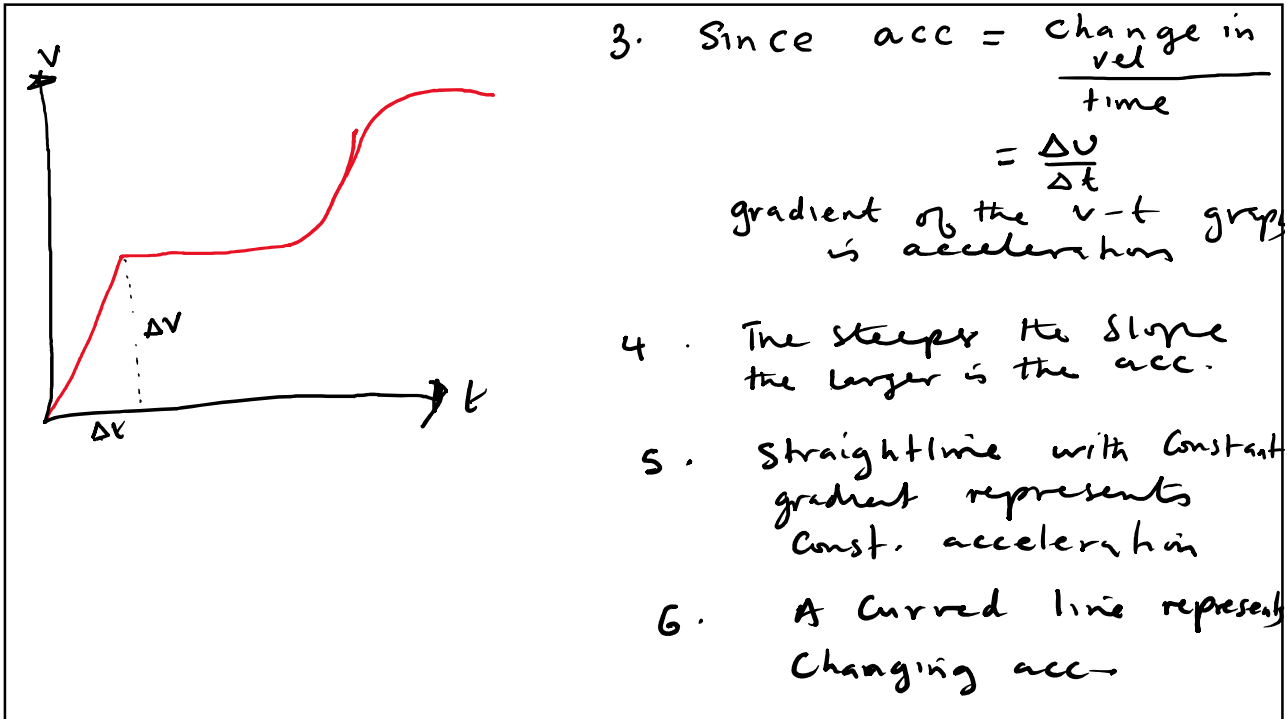 V
ΔV
Δt
t
3. Since acc = change in
vel
time
= Δv
Δt
gradient of the v-t graph
is acceleration
4. The steeper the slope
the larger is the acc.
5. Straightline with constant
gradient represents
Const. acceleration
6. A Curved line represents
Changing acc